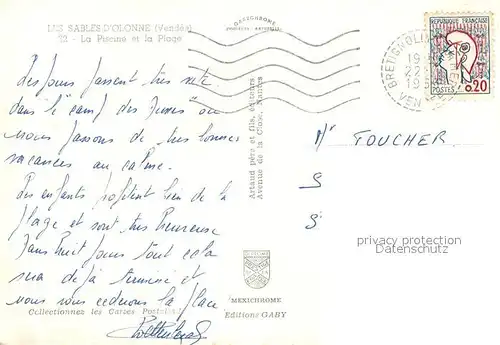 LES SABLES-D'OLONNE (Vendée)
22 - La Piscine et la Plage
Les jours passent très vite
dans le "camp des Jeunes" ou
nous passons de très bonnes
vacances au calme.
Les enfants profitent bien de la
plage et sont très heureuse
Dans huit jours tout cela
sera déjà terminé et
nous vous cèderons la place
Collectionnez les Cartes Postales
MEXICHROME
Editions GABY
Artaud père et fils, éditeurs
Avenue de la Close, Nantes
REPUBLIQUE FRANÇAISE
POSTES 0,20
BRETIGNOLLES
19
22
19
VENDÉE
Mr TOUCHER.
S
S
privacy protection
Datenschutz